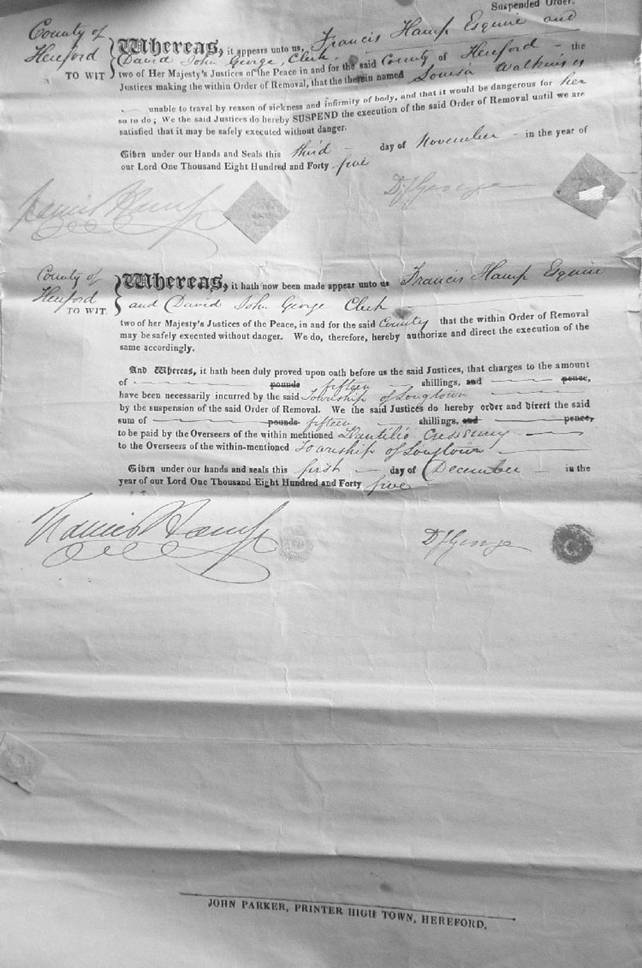 Suspended Order.
County of Hereford TO WIT
Whereas, it appears unto us, Francis Hamp Esquire and
David John George, Clerk
two of Her Majesty's Justices of the Peace in and for the said County of Hereford – the
Justices making the within Order of Removal, that the therein named Louisa Watkins is
unable to travel by reason of sickness and infirmity of body, and that it would be dangerous for her
so to do; We the said Justices do hereby SUSPEND the execution of the said Order of Removal until we are
satisfied that it may be safely executed without danger.
Given under our Hands and Seals this third day of November in the year of
our Lord One Thousand Eight Hundred and Forty five
Francis Hamp
D J George
County of Hereford TO WIT.
Whereas, it hath now been made appear unto us Francis Hamp Esquire
and David John George Clerk
two of her Majesty's Justices of the Peace, in and for the said County that the within Order of Removal
may be safely executed without danger. We do, therefore, hereby authorize and direct the execution of the
same accordingly.
And Whereas, it hath been duly proved upon oath before us the said Justices, that charges to the amount
of pounds fifteen shillings, and pence,
have been necessarily incurred by the said Township of Longtown
by the suspension of the said Order of Removal. We the said Justices do hereby order and direct the said
sum of pounds fifteen shillings, and pence,
to be paid by the Overseers of the within mentioned Llantilio Cressenny
to the Overseers of the within-mentioned Township of Longtown
Given under our hands and seals this first day of December in the
year of our Lord One Thousand Eight Hundred and Forty five
Francis Hamp
D J George
JOHN PARKER, PRINTER HIGH TOWN, HEREFORD.